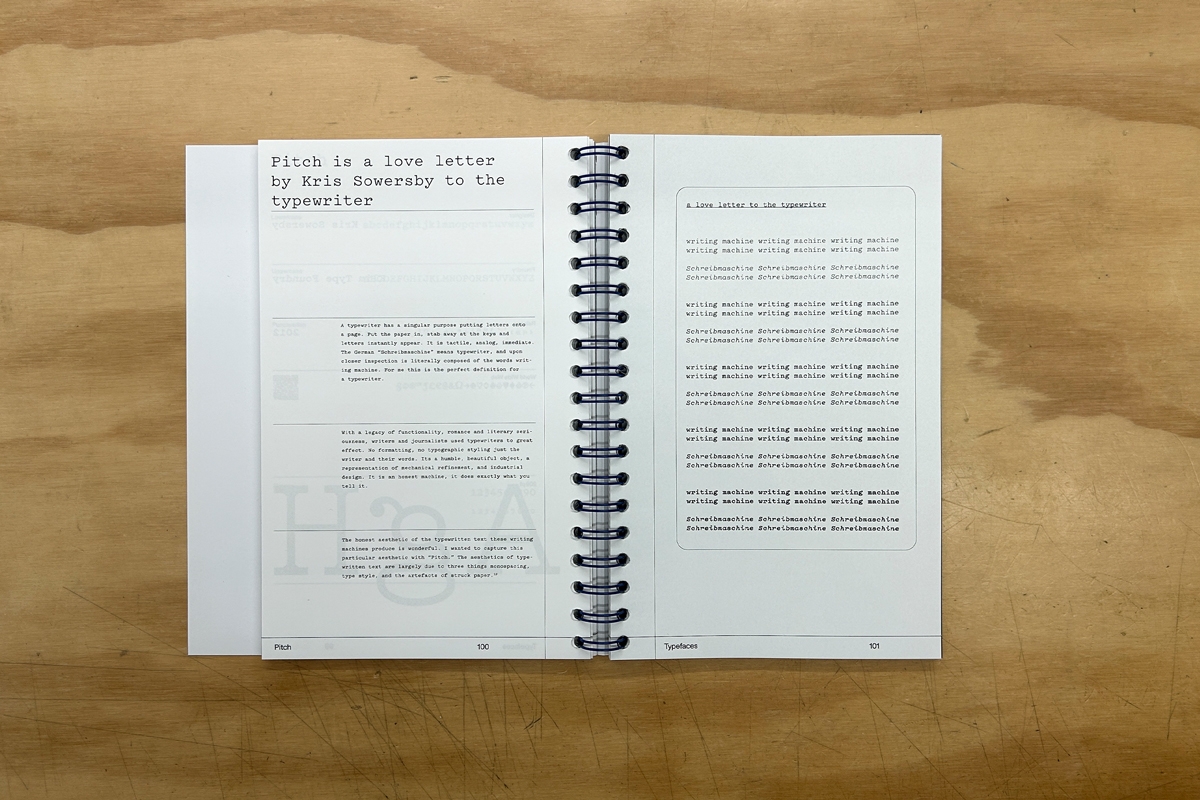 Pitch is a love letter
by Kris Sowersby to the
typewriter
A typewriter has a singular purpose putting letters onto
a page. Put the paper in, stab away at the keys and
letters instantly appear. It is tactile, analog, immediate.
The German "Schreibmaschine" means typewriter, and upon
closer inspection is literally composed of the words writ-
ing machine. For me this is the perfect definition for
a typewriter.
With a legacy of functionality, romance and literary seri-
ousness, writers and journalists used typewriters to great
effect. No formatting, no typographic styling just the
writer and their words. Its a humble, beautiful object, a
representation of mechanical refinement, and industrial
design. It is an honest machine, it does exactly what you
tell it.
The honest aesthetic of the typewritten text these writing
machines produce is wonderful. I wanted to capture this
particular aesthetic with "Pitch." The aesthetics of type-
written text are largely due to three things monospacing,
type style, and the artefacts of struck paper."
Pitch
100
a love letter to the typewriter
writing machine writing machine writing machine
writing machine writing machine writing machine
Schreibmaschine Schreibmaschine Schreibmaschine
Schreibmaschine Schreibmaschine Schreibmaschine
writing machine writing machine writing machine
writing machine writing machine writing machine
Schreibmaschine Schreibmaschine Schreibmaschine
Schreibmaschine Schreibmaschine Schreibmaschine
writing machine writing machine writing machine
writing machine writing machine writing machine
Schreibmaschine Schreibmaschine Schreibmaschine
Schreibmaschine Schreibmaschine Schreibmaschine
writing machine writing machine writing machine
writing machine writing machine writing machine
Schreibmaschine Schreibmaschine Schreibmaschine
Schreibmaschine Schreibmaschine Schreibmaschine
writing machine writing machine writing machine
writing machine writing machine writing machine
Schreibmaschine Schreibmaschine Schreibmaschine
Schreibmaschine Schreibmaschine Schreibmaschine
Typefaces
101